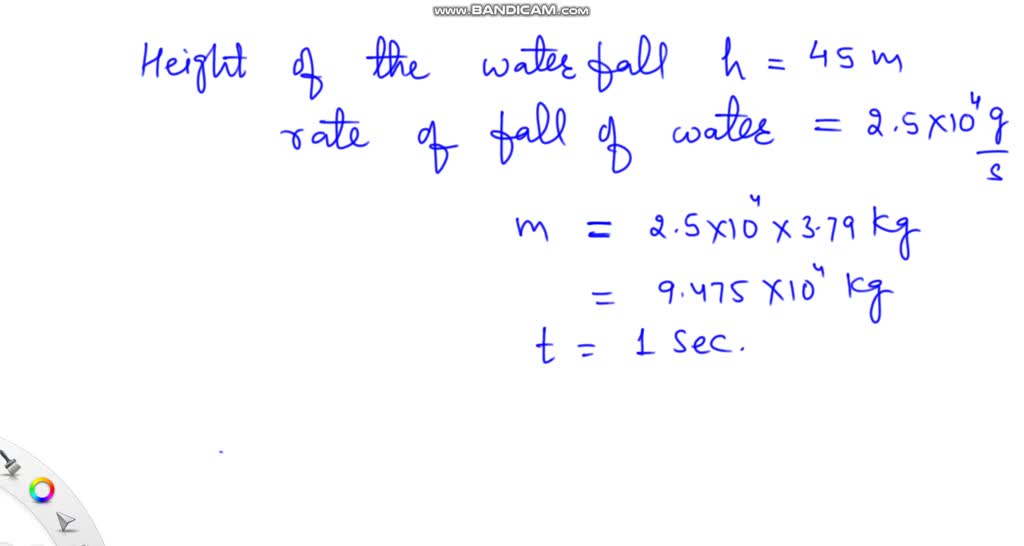 www.BANDICAM.com
Height of the water fall h = 45 m
rate of fall of water = 2.5×10⁴ g/s
m = 2.5×10⁴ × 3.79 kg
= 9.475 ×10⁴ kg
t = 1 sec.